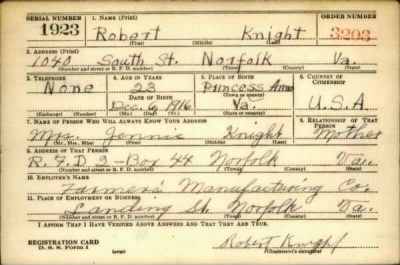 SERIAL NUMBER 1. NAME (Print) ORDER NUMBER
1923 Robert Knight 3203
(First) (Middle) (Last)
2. ADDRESS (Print)
1040 South St. Norfolk Va.
(Number and street or R. F. D. number) (Town) (County) (State)
3. TELEPHONE 4. AGE IN YEARS 5. PLACE OF BIRTH 6. COUNTRY OF CITIZENSHIP
None 23 Princess Anne
DATE OF BIRTH (Town or county)
Dec. 6, 1916 Va. U.S.A
(Exchange) (Number) (Mo.) (Day) (Yr.) (State or country)
7. NAME OF PERSON WHO WILL ALWAYS KNOW YOUR ADDRESS 8. RELATIONSHIP OF THAT PERSON
Mrs. Jennie Knight Mother
(Mr., Mrs., Miss) (First) (Middle) (Last)
9. ADDRESS OF THAT PERSON
R.F.D 2-Box 44 Norfolk Va.
(Number and street or R. F. D. number) (Town) (County) (State)
10. EMPLOYER'S NAME
Farmers Manufacturing Co.
11. PLACE OF EMPLOYMENT OR BUSINESS
Landing St. Norfolk Va.
(Number and street or R. F. D. number) (Town) (County) (State)
I AFFIRM THAT I HAVE VERIFIED ABOVE ANSWERS AND THAT THEY ARE TRUE.
REGISTRATION CARD Robert Knight
D. S. S. Form 1 (over) (Registrant's signature)